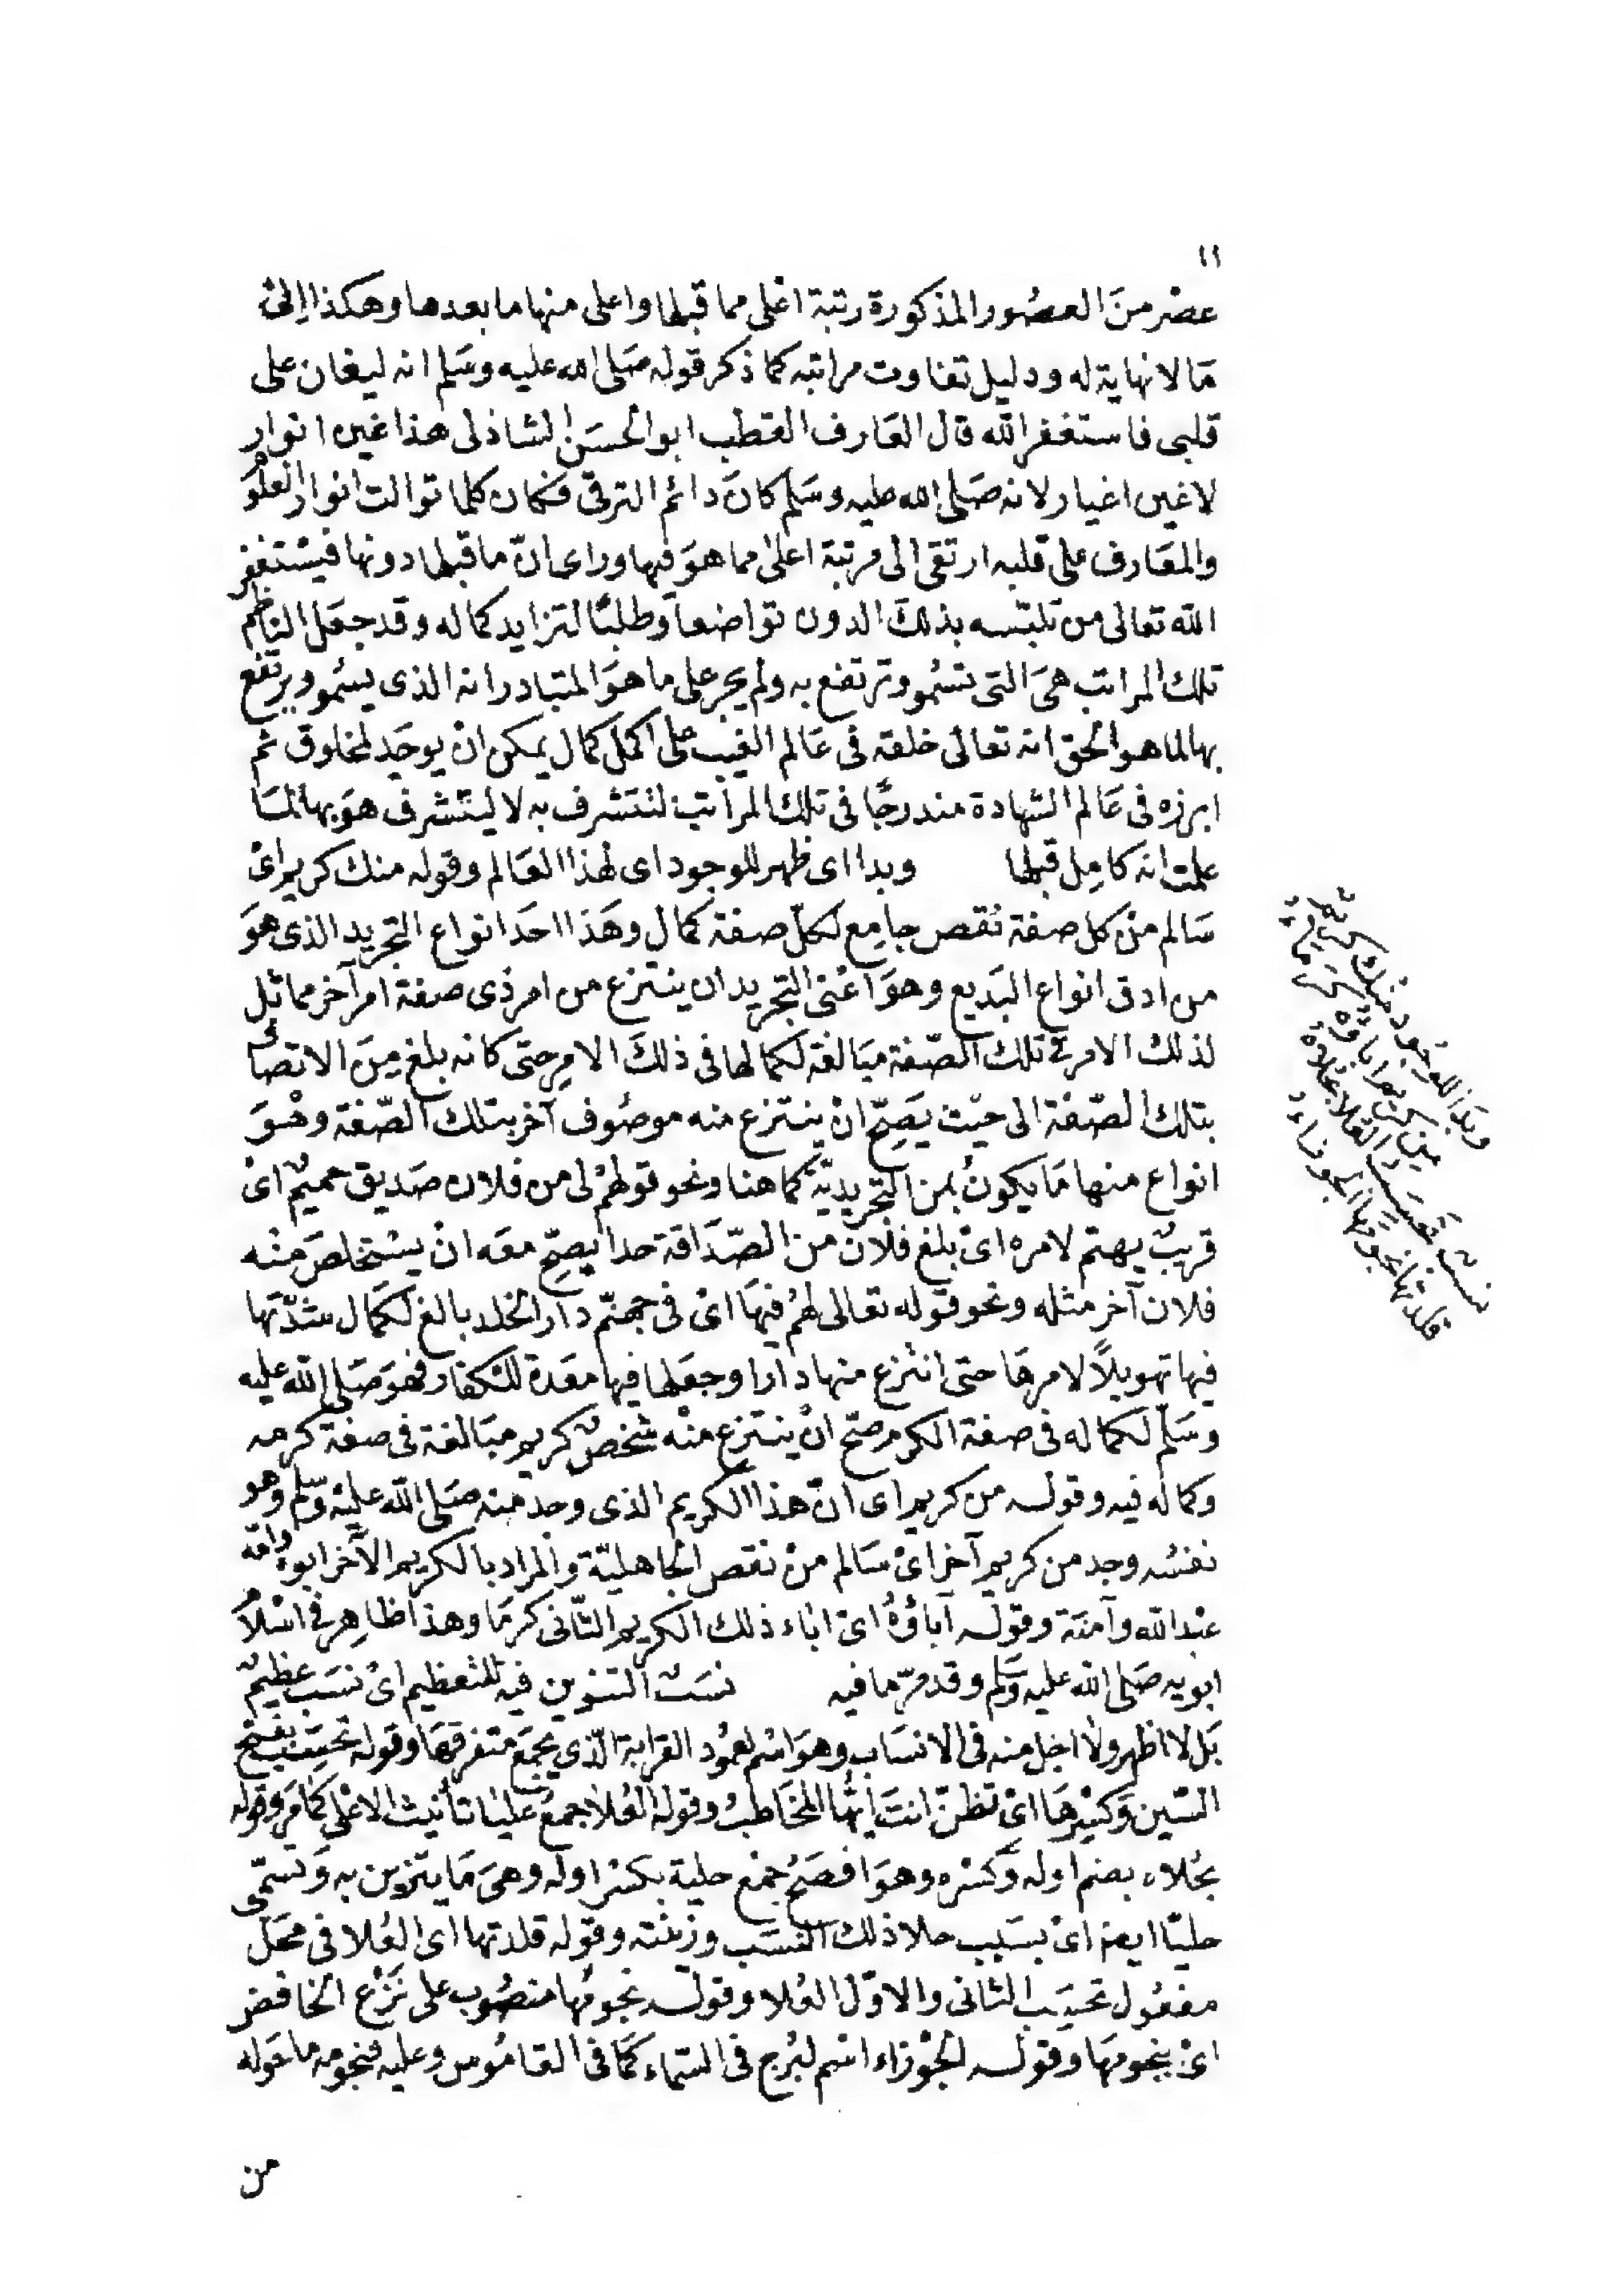 ١١
عصْر منَ العصُور المذكورة رتبة اعْلى مما قبلها واعلى منها ما بعدها وهكذا إلىْ
مَا لا نهاية له ودليل تفاوت مراتبه كما ذكر قوله صَلى الله عليه وسَلم انه ليغان على
قلبى فاستغفر الله قال العَارف القطب ابو الحسَن الشاذلى هذا غين انوار
لا غين اغيار لانه صَلى الله عليه وسَلم كانَ دائم الترقى فكان كلما توالت انوار العلوَ
والمعَارف على قلبه ارتقى الى مرتبة اعلى مما هوَ فيها وراى انّ ما قبلها دونها فيسْتغفر
الله تعالى من تلبّسه بذلكَ الدون تواضعا وطلبًا لتزايد كماله وقد جعَل الناظم
تلك المراتب هىَ التى تسْمُو وترتفع به ولم يجر على ما هوَ المتبادر انه الذى يسْمو ويرتفع
بها لما هو الحق انه تعالى خلقه فى عَالم الغيْب على اكمل كمال يمكن انْ يوجَد لمخلوق ثم
ابرزه فى عَالم الشهادة مندرجًا فى تلك المراتب لتتشرف به لا ليتشرف هوَ بها لمَا
علمت انه كامِل قبلها وبدا اى ظهر للوجود اى لهذا العَالم وقوله منك كريم اىْ
سَالم منْ كل صفة نُقص جامع لكلّ صفة كمال وهَذا احَد انواع التجريد الذى هوَ
من ادق انواع البَديع وهوَ اعْنى التجريد ان ينتزع من امر ذى صفة امر آخر مماثل
لذلك الامر فى تلك الصّفة مبَالغة لكمالها فى ذلكَ الامر حتى كانه بلغ مِنَ الاتصاف
بتلك الصّفة الى حيْث يَصِحّ انْ ينتزع منه موصُوف آخر بتلكَ الصّفة وهْوَ
انواع منها مَا يكونُ بمن التجريديّة كما هنا ونحو قولهمْ لى من فلان صَديق حميمٌ اىْ
قريبٌ يهتم لامره اىْ بلغ فلان من الصّدَاقة حدا يصِحّ معَه انْ يسْتخلصَ منْه
فلان آخر مثله ونحو قوله تعالى لهُم فيهَا اىْ فى جهنّم دار الخلد بالغ لكمَال شدّتها
فيها تهويلاً لامرهَا حتى انتزع منها دارا وجعَلها فيها معَدة للكفار فهوَ صَلى الله عليه
وسَلّم لكماله فى صفة الكرم صَحّ انْ ينتزع منْه شخصٌ كريم مبَالغة فى صفة كرمه
وكماله فيه وقوله من كريم اى انّ هذا الكريم الذى وجد منه صَلى الله عليْه وسَلم وهو
نفسُه وجد من كريم آخر اىْ سَالم منْ نقص الجاهليّة والمراد بالكريم الآخر ابوه وامّه
عبْد الله وآمنة وقوله آباؤهُ اىْ اباء ذلك الكريم الثّانى كرمَا وهذا ظاهِر فى اسْلام
ابويه صَلى الله عليه وسَلم وقد مرّ ما فيه نسَبٌ التنوين فيه للتعظيم اىْ نسَب عظيمٌ
بَل لا اظهر ولا اجل منه فى الانسَاب وهوَ اسْم لعمُود القرابة الّذى يجمَع متفرقهَا وقوله تحسَب بفتح
السّين وَكسْرهَا اىْ تظنّ انتَ ايُّها المخَاطبُ وقوله العُلا جمعُ عليَا تأنيث الاعْلى كمَا مَر وقوله
بحُلاه بضم اوله وَكسْره وهوَ افصَحُ جمْع حلية بكسْر اوله وهىَ مَا يتزين به وَتسمّى
حليّا ايضا اىْ بسَبب حلا ذلك النسَب وزينته وقوله قلدتها اى العُلا فى محَل
مفعُول تحسَب الثانى والاوّل العُلا وقوله نجومُها منصُوب على نَزْع الخافض
اىْ بنجومهَا وقوله الجْوْزاء اسْم لبُرج فى السّماء كمَا فى القامُوس وعليه فنجومه ما حَوله
من
وبَدَا للوجُود منْك كريمٌ
مِن كريم آباؤه كُرَماءُ
نسَبٌ تحسَب العُلا بحُلاهُ
قلدتها نجومَها الجوزاءُ